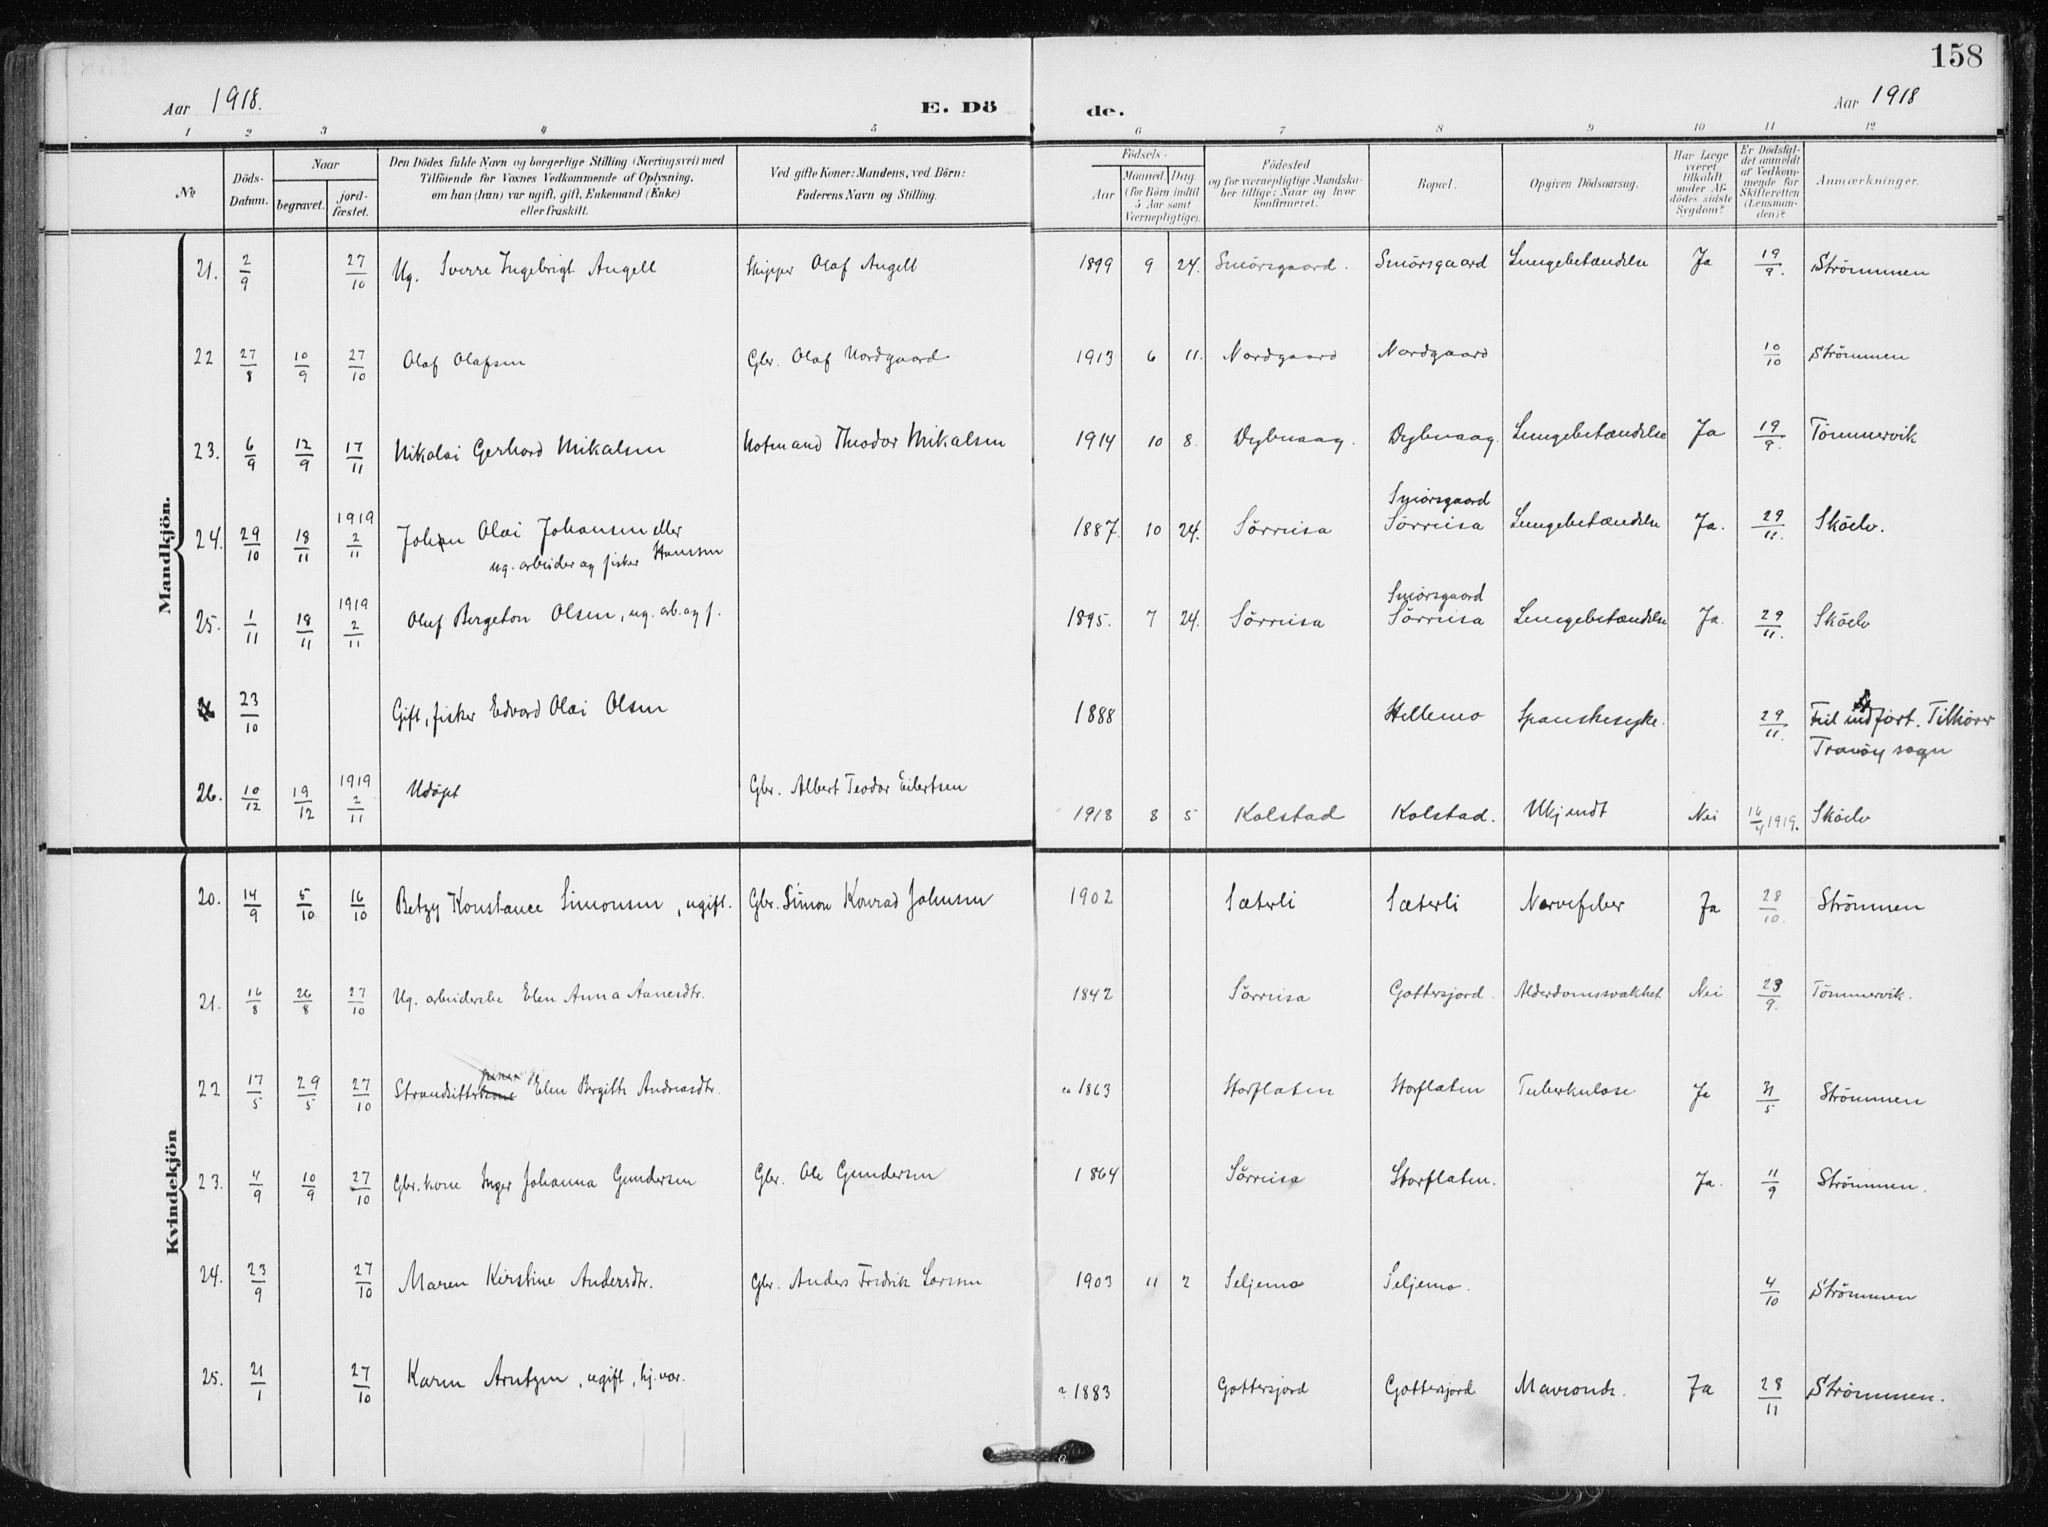 158
Aar 1918.
E. Dö de.
Aar 1918
1 2 3 4 5 6 7 8 9 10 11 12
No
Döds-Datum.
Naar
begravet.
jord-fæstet.
Den Dödes fulde Navn og borgerlige Stilling (Næringsvei) med
Tilföiende for Voxnes Vedkommende af Oplysning,
om han (hun) var ugift, gift, Enkemand (Enke)
eller fraskilt.
Ved gifte Koner: Mandens, ved Börn:
Faderens Navn og Stilling.
Födsels-
Aar
Maaned Dag.
(for Börn indtil
5 Aar samt
Værnepligtige).
Födested
og for værnepligtige Mandska-
ber tillige: Naar og hvor
konfirmeret.
Bopæl.
Opgiven Dödsaarsag.
Har Læge
været
tilkaldt
under Af-
dödes sidste
Sygdom?
Er Dödsfal-
det anmeldt
af Vedkom-
mende for
Skifteretten
(Lensman-
den)?
Anmærkninger.
Mandkjön.
21. 2/9 27/10 Ug. Sverre Ingebrigt Angell Skipper Olaf Angell 1899 9 24. Smörsgaard. Smörsgaard Lungebetændelse Ja 19/9. Strömmen
22 27/8 10/9 27/10 Olaf Olafsen Gbr. Olaf Nordgaard 1913 6 11. Nordgaard Nordgaard 10/10 Strömmen
23. 6/9 12/9 17/11 Nikolai Gerhard Mikalsen Notmand Theodor Mikalsen 1914 10 8. Dybvaag. Dybvaag. Lungebetændelse Ja 19/9. Tömmervik
24. 29/10 18/11 1919 2/11 Johan Olai Johansen eller
ug. arbeider og fisker Hansen 1887. 10 24. Sörreisa Smörsgaard Sörreisa Lungebetændelse Ja. 29/11. Sköelv.
25. 1/11 18/11 1919 2/11 Oluf Bergeton Olsen, ug. arb. og f. 1895. 7 24. Sörreisa Smörsgaard Sörreisa Lungebetændelse Ja. 29/11. Sköelv
23/10 Gift, fisker Edvard Olai Olsen 1888 Hellemo Spanskesyke. 29/11. Feil indfört. Tilhörer
Tranöy sogn
26. 10/12 19/12 1919 2/11 Udöpt Gbr. Albert Teodor Eilertsen 1918 8 5 Kolstad Kolstad. Ukjendt Nei 16/4 1919. Sköelv
Kvindekjön
20. 14/9 5/10 16/10 Betzy Konstance Simonsen, ugift. Gbr. Simon Konrad Johnsen 1902 Sæterli Sæterli Nervefeber Ja 28/10. Strömmen
21. 16/8 26/8 27/10 Ug. arbeiderske Elen Anna Aanesdtr. 1842 Sörreisa Gottesjord. Alderdomssvakhet Nei 23/9. Tömmervik.
22 17/5 29/5 27/10 Strandsitterkone Elen Bergitte Andreasdtr. ca 1863 Storflaten Storflaten Tuberkulose Ja 31/5 Strömmen
23. 4/9 10/9 27/10 Gbr. kone Inger Johanna Gundersen Gbr. Ole Gundersen 1864 Sörreisa Storflaten. Ja. 11/9 Strömmen.
24. 23/9 27/10 Maren Kirstine Andersdtr. Gbr. Anders Fredrik Larsen 1903 11 2 Seljemo Seljemo. 4/10 Strömmen
25. 21/1 27/10 Karen Arntzen, ugift, hj. vær. 1883 Gottesjord Gottesjord Ja 28/11 Strömmen.